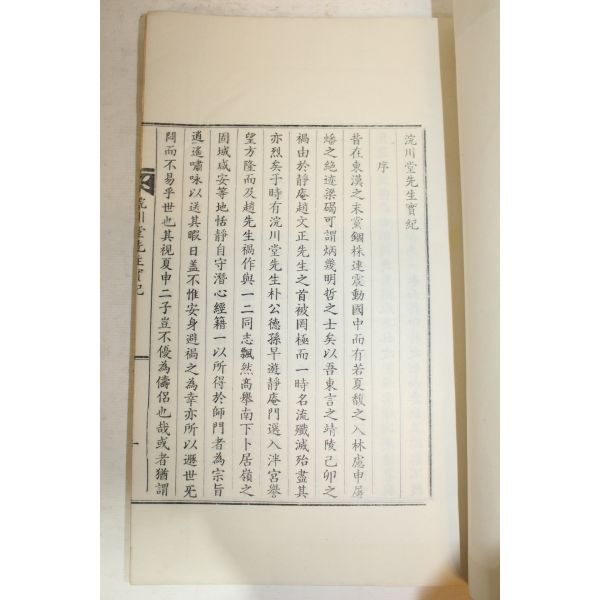 浣川堂先生實紀
序
昔在東漢之末黨錮株連震動國中而有若夏馥之入林慮申屠
蟠之絶迹梁碭可謂炳幾明哲之士矣以吾東言之靖陵己卯之
禍由於靜庵趙文正先生之首被罔極而一時名流殲滅殆盡其
亦烈矣于時有浣川堂先生朴公德孫早遊靜庵門選入泮宮譽
望方隆而及趙先生禍作與一二同志飄然高舉南下卜居嶺之
固城咸安等地恬靜自守潛心經籍一以所得於師門者為宗旨
逍遙嘯咏以送其暇日盖不惟安身避禍之為幸亦所以遯世无
悶而不易乎世也其視夏申二子豈不優為儔侶也哉或者猶謂
浣川堂先生實紀